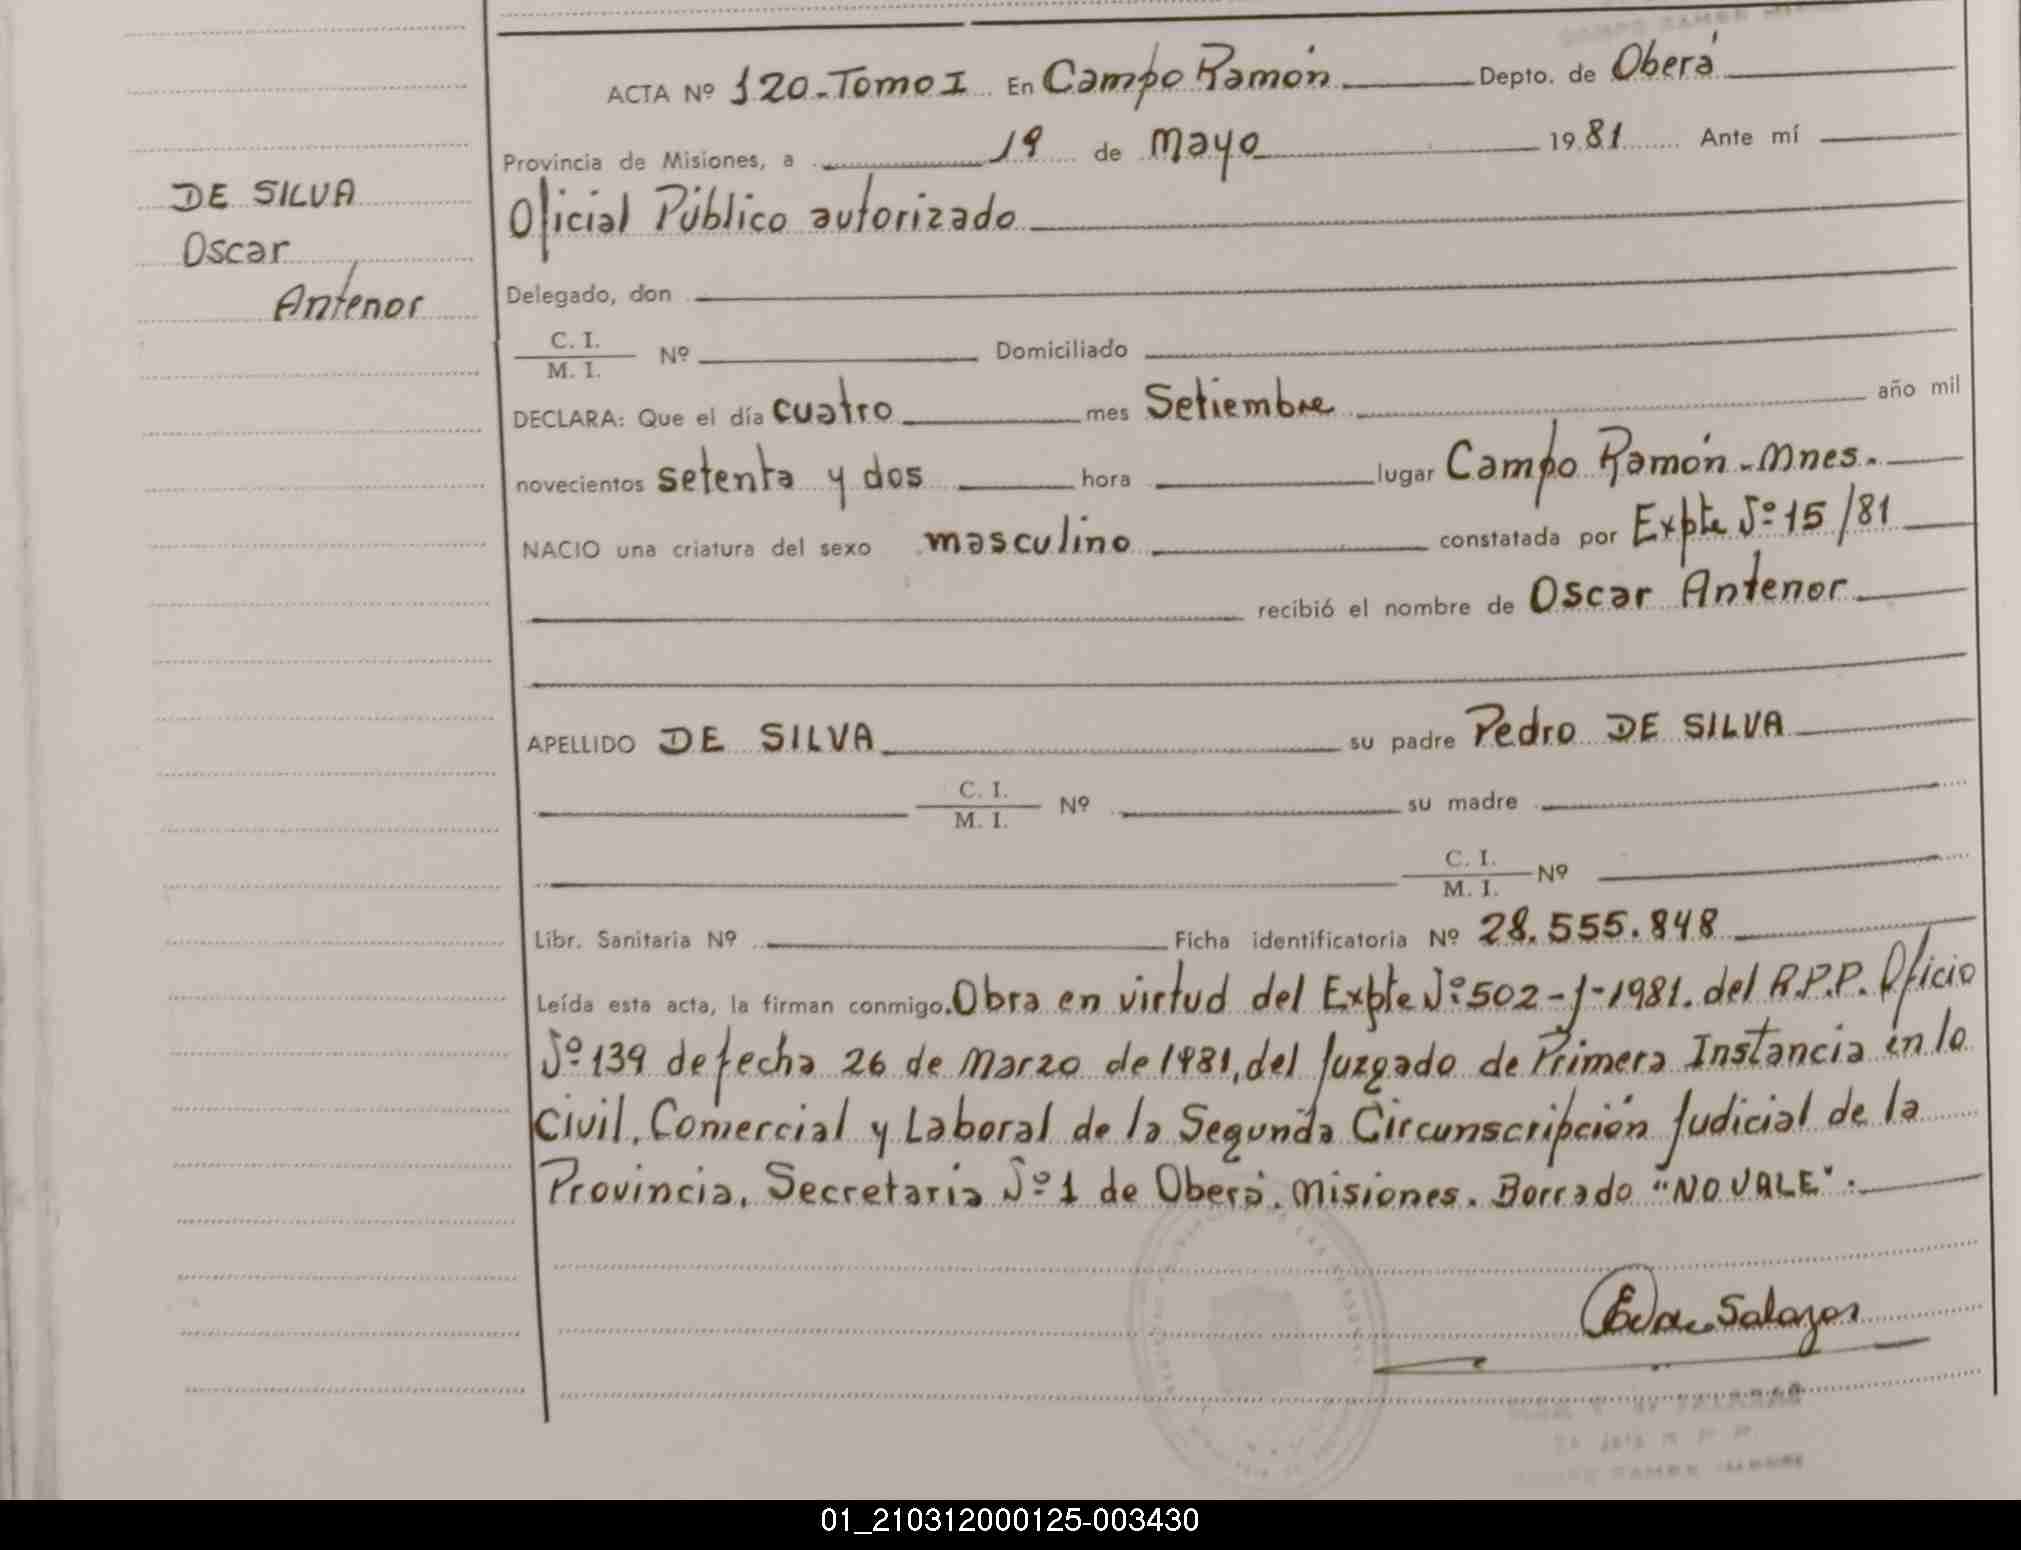 ACTA Nº 120-Tomo I En Campo Ramón Depto. de Oberá
Provincia de Misiones, a 19 de Mayo 1981 Ante mí
DE SILVA
Oscar
Antenor
Oficial Público autorizado
Delegado, don
C. I.
M. I. Nº Domiciliado
DECLARA: Que el día cuatro mes Setiembre año mil
novecientos setenta y dos hora lugar Campo Ramón-Mnes.
NACIO una criatura del sexo masculino constatada por Expte Nº 15/81
recibió el nombre de Oscar Antenor
APELLIDO DE SILVA su padre Pedro DE SILVA
C. I.
M. I. Nº su madre
C. I.
M. I. Nº
Libr. Sanitaria Nº Ficha identificatoria Nº 28.555.848
Leída esta acta, la firman conmigo. Obra en virtud del Expte Nº 502-J-1981. del R.P.P. Oficio
Nº 139 de fecha 26 de Marzo de 1981, del Juzgado de Primera Instancia en lo
Civil, Comercial y Laboral de la Segunda Circunscripción Judicial de la
Provincia, Secretaria Nº 1 de Oberá. Misiones. Borrado "NO VALE".
Salazar
01_210312000125-003430